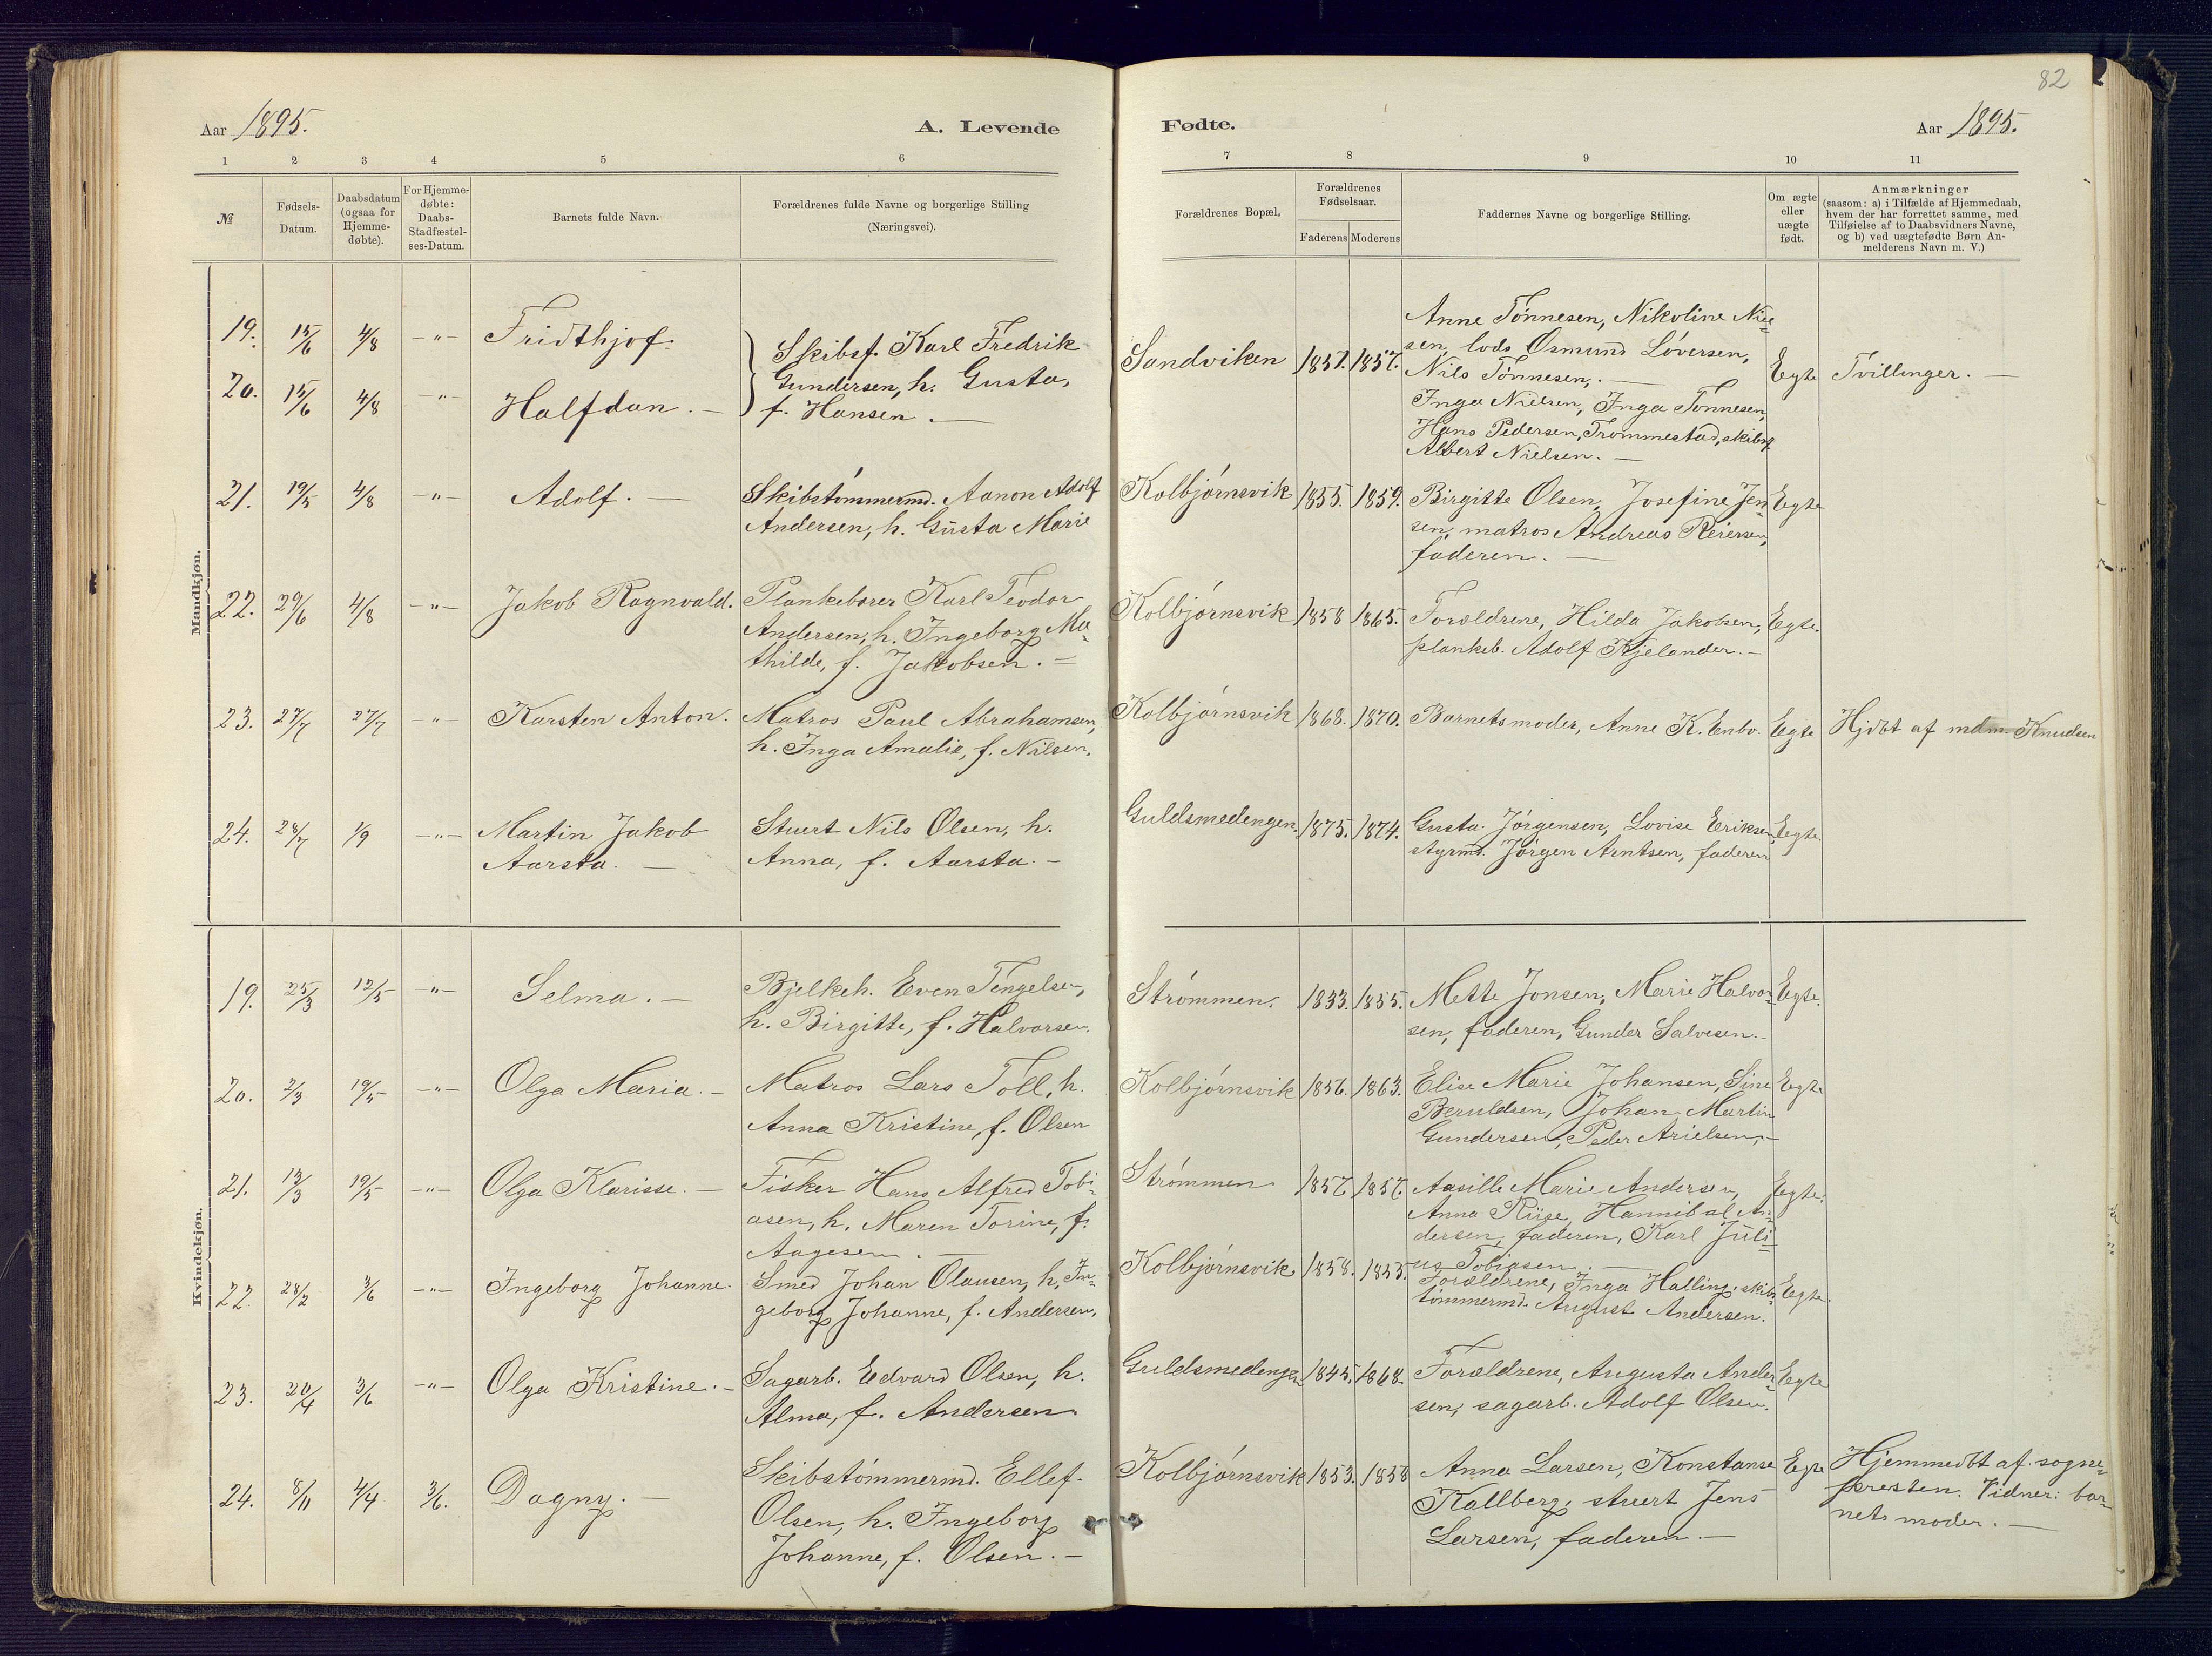 82
Aar 1895.
A. Levende
Fødte.
Aar 1895.
1 2 3 4 5 6 7 8 9 10 11
№
Fødsels-
Datum.
Daabsdatum
(ogsaa for
Hjemme-
døbte).
For Hjemme-
døbte:
Daabs-
Stadfæstel-
ses-Datum.
Barnets fulde Navn.
Forældrenes fulde Navne og borgerlige Stilling
(Næringsvei).
Forældrenes Bopæl.
Forældrenes
Fødselsaar.
Faderens Moderens
Faddernes Navne og borgerlige Stilling.
Om ægte
eller
uægte
født.
Anmærkninger
(saasom: a) i Tilfælde af Hjemmedaab,
hvem der har forrettet samme, med
Tilføielse af to Daabsvidners Navne,
og b) ved uægtefødte Børn An-
melderens Navn m. V.)
Mandkjøn.
19. 15/6 4/8 -"- Fridthjof.
20. 15/6 4/8 -"- Halfdan. -
Skibsf. Karl Fredrik
Gundersen, h. Gusta,
f. Hansen. -
Sandviken 1857. 1857.
Anne Tønnesen, Nikoline Niel-
sen, lods Osmund Løversen,
Nils Tønnesen,. -
Inga Nielsen, Inga Tønnesen,
Hans Pedersen, Trommestad, skibsf.
Albert Nielsen. -
Egte Tvillinger. -
21. 19/5 4/8 -"- Adolf. -
Skibstømmermd. Aanon Adolf
Andersen, h. Gusta Marie
Kolbjørnsvik 1855. 1859.
Birgitte Olsen, Josefine Jen-
sen, matros Andreas Reiersen,
faderen. -
Egte
22. 29/6 4/8 -"- Jakob Ragnvald.
Plankebærer Karl Teodor
Andersen, h. Ingeborg Ma-
thilde, f. Jakobsen. -
Kolbjørnsvik 1858 1865.
Forældrene, Hilda Jakobsen,
plankeb. Adolf Kjelander. -
Egte.
23. 27/7 27/7 -"- Karsten Anton.
Matros Paul Abrahamsen,
h. Inga Amalie, f. Nilsen.
Kolbjørnsvik 1868. 1870.
Barnets moder, Anne K. Enbo.
Egte Hjdbt af mdm. Knudsen
24. 28/7 1/9 -"- Martin Jakob
Aarsta. -
Stuert Nils Olsen, h.
Anna, f. Aarsta. -
Guldsmedengen. 1875. 1874.
Gusta Jørgensen, Lovise Eriksen,
styrmd. Jørgen Arntsen, faderen
Egte
Kvindekjøn.
19. 25/3 12/5 -"- Selma. -
Bjelkeh. Even Tengelsen,
h. Birgitte, f. Halvorsen.
Strømmen. 1833. 1855.
Mette Jonsen, Marie Halvor-
sen, faderen, Gunder Salvesen. -
Egte.
20. 2/3 19/5 -"- Olga Maria. -
Matros Lars Toll, h.
Anna Kristine, f. Olsen
Kolbjørnsvik 1856. 1863.
Elise Marie Johansen, Sine
Beruldsen, Johan Martin
Gundersen, Peder Arielsen, -
Egte
21. 13/3 19/5 -"- Olga Klarisse. -
Fisker Hans Alfred Tobi-
asen, h. Maren Torine, f.
Aagesen. -
Strømmen 1857. 1857.
Aasille Marie Andersen,
Anna Riise, Hannibal An-
dersen, faderen, Karl Juli-
us Tobiasen. -
Egte.
22. 28/2 3/6 -"- Ingeborg Johanne.
Smed Johan Olausen, h. In-
geborg Johanne, f. Andersen.
Kolbjørnsvik 1858. 1855.
Forældrene, Inga Halling, skibs-
tømmermd. August Andersen.
Egte.
23. 20/4 3/6 -"- Olga Kristine. -
Sagarb. Edvard Olsen, h.
Alma, f. Andersen.
Guldsmedengen 1845. 1868.
Forældrene, Augusta Ander-
sen, sagarb. Adolf Olsen.
Egte
24. 8/11 4/4 3/6. Dagny. -
Skibstømmermd. Ellef
Olsen, h. Ingeborg
Johanne, f. Olsen. -
Kolbjørnsvik 1853. 1858
Anna Larsen, Konstanse
Kallberg, stuert Jens
Larsen, faderen. -
Egte
Hjemmedbt af sogne-
presten. Vidner: bar-
nets moder. -